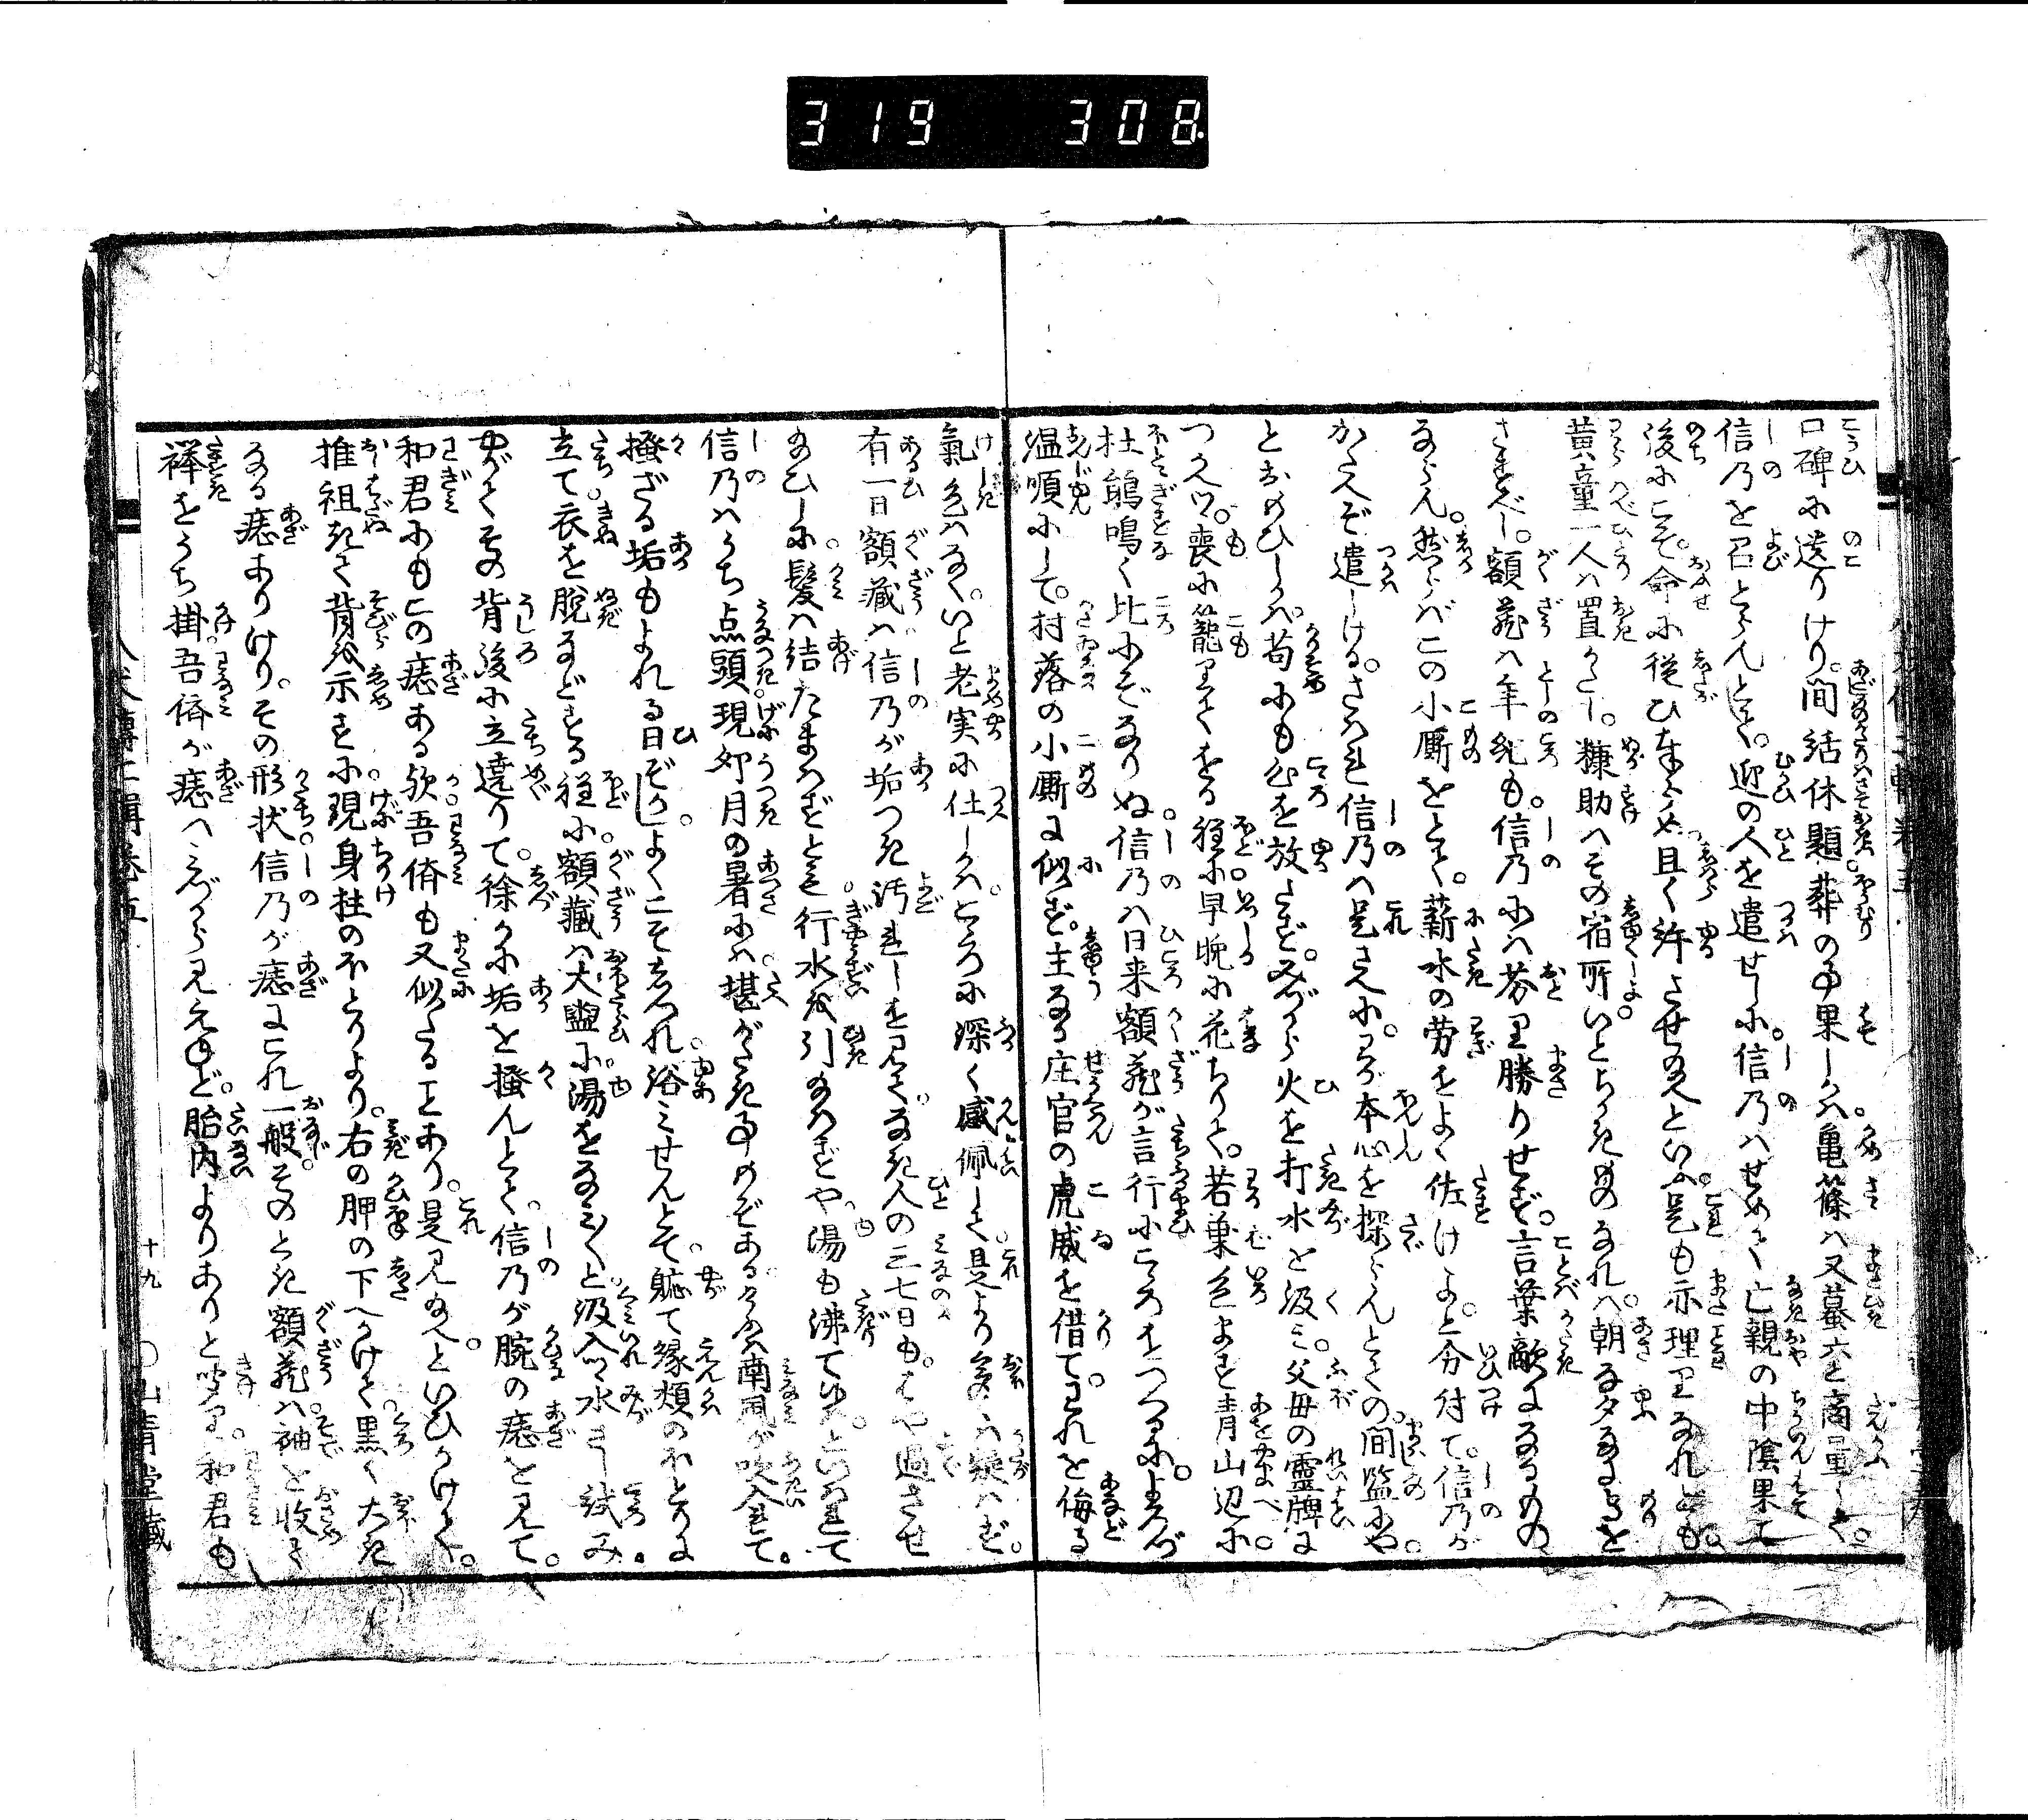 319 308
口碑に遺りけり。間話休題葬の事果しかは。亀篠は又蟇六と商量して。
信乃を召とらんとて。迎の人を遣せしに。信乃はせめて亡親の中陰果て
後にこそ。命に従ひ奉らめ且く許させ給へといふ。是も亦理りなれども。
黄童一人は置かたし。糠助はその宿所いとちかきものなれは。朝な夕なまきを
さすべし。額蔵は年紀も。信乃には劣り勝りせず。言葉敵になるもの
ならん。然らばこの小厮をとて。薪水の労をよく佐けよ。と分付て。信乃が
かたへぞ遣しける。されは信乃は是さへに。わが本心を探らんとての。間監にや。
とおもひしかは。苟にも心を放さず。みづから火を打水を汲み。父母の霊牌に
つかへつ。喪に籠りてをる程に早晩に花ちりて。若葉色ます青山辺に。
杜鵑鳴く比にぞなりぬ。信乃は日来額蔵が言行にこころをつくるに。よろづ
温順にして。村落の小厮に似ず。主なる庄官の虎威を借て。われを侮る
氣色はなく。いと老実に仕しかは。こころに深く感佩して是より多くは疑はず。
有一日額蔵は信乃が垢つき汚れしを見て。なき人の三七日も。はや過させ
給ひしに。髪は結たまはずとも。行水を引給はずや。湯も沸て候。といはれて
信乃はうち点頭。現卯月の暑には。堪がたき事もぞある。けふは南風が吹入れて。
掻ざる垢もよれる日ぞかし。よくこそしつれ。浴みせんとて。軈て縁頬のほとりに
立て衣を脱などする程に。額蔵は大盥に湯をなみ〳〵と汲入つ。水さし試み。
やがてその背後に立遶りて。徐かに垢を掻んとて。信乃が腕の痣を見て。
和君にもこの痣ある歟吾儕も又似たることあり。是見給へといひかけて。
推袒ぎて背を示すに。現身柱のほとりより。右の胛の下へかけて。黒く大きな
なる痣ありけり。その形状信乃が痣にこれ一般。そのとき額蔵は袖を收て
襷をうち掛。吾儕が痣はみづから見えねど。胎内よりありと聞り。和君も
八犬傳二輯巻五
十九
〇山青堂藏